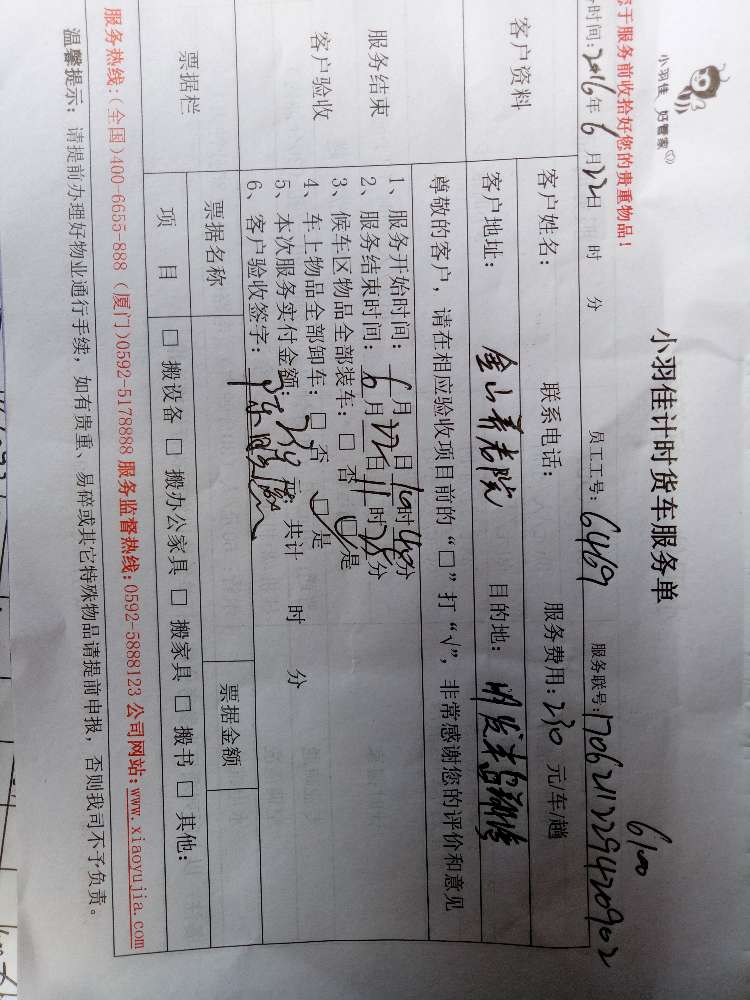 小羽佳 好管家
您于服务前收拾好您的贵重物品!
小羽佳计时货车服务单
6100
时间:2016年6月22日 时 分 员工工号:6469 服务联号:1706211229420902
客户资料
客户姓名: 联系电话: 服务费用:230元/车/趟
客户地址: 金山养老院 目的地:
服务结束
客户验收
尊敬的客户,请在相应验收项目前的“□”打“√”,非常感谢您的评价和意见
1、服务开始时间:6月22日10时40分
2、服务结束时间:6月22日11时28分
3、候车区物品全部装车:□否 □是
4、车上物品全部卸车:□否 □是
5、本次服务实付金额:230元;共计 时 分
6、客户验收签字:
票据栏
票据名称 票据金额
项 目 □搬设备 □搬办公家具 □搬家具 □搬书 □其他:
服务热线:(全国)400-6655-888 (厦门)0592-5178888 服务监督热线:0592-5888123 公司网站:www.xiaoyujia.com
温馨提示:请提前办理好物业通行手续,如有贵重、易碎或其它特殊物品请提前申报,否则我司不予负责。